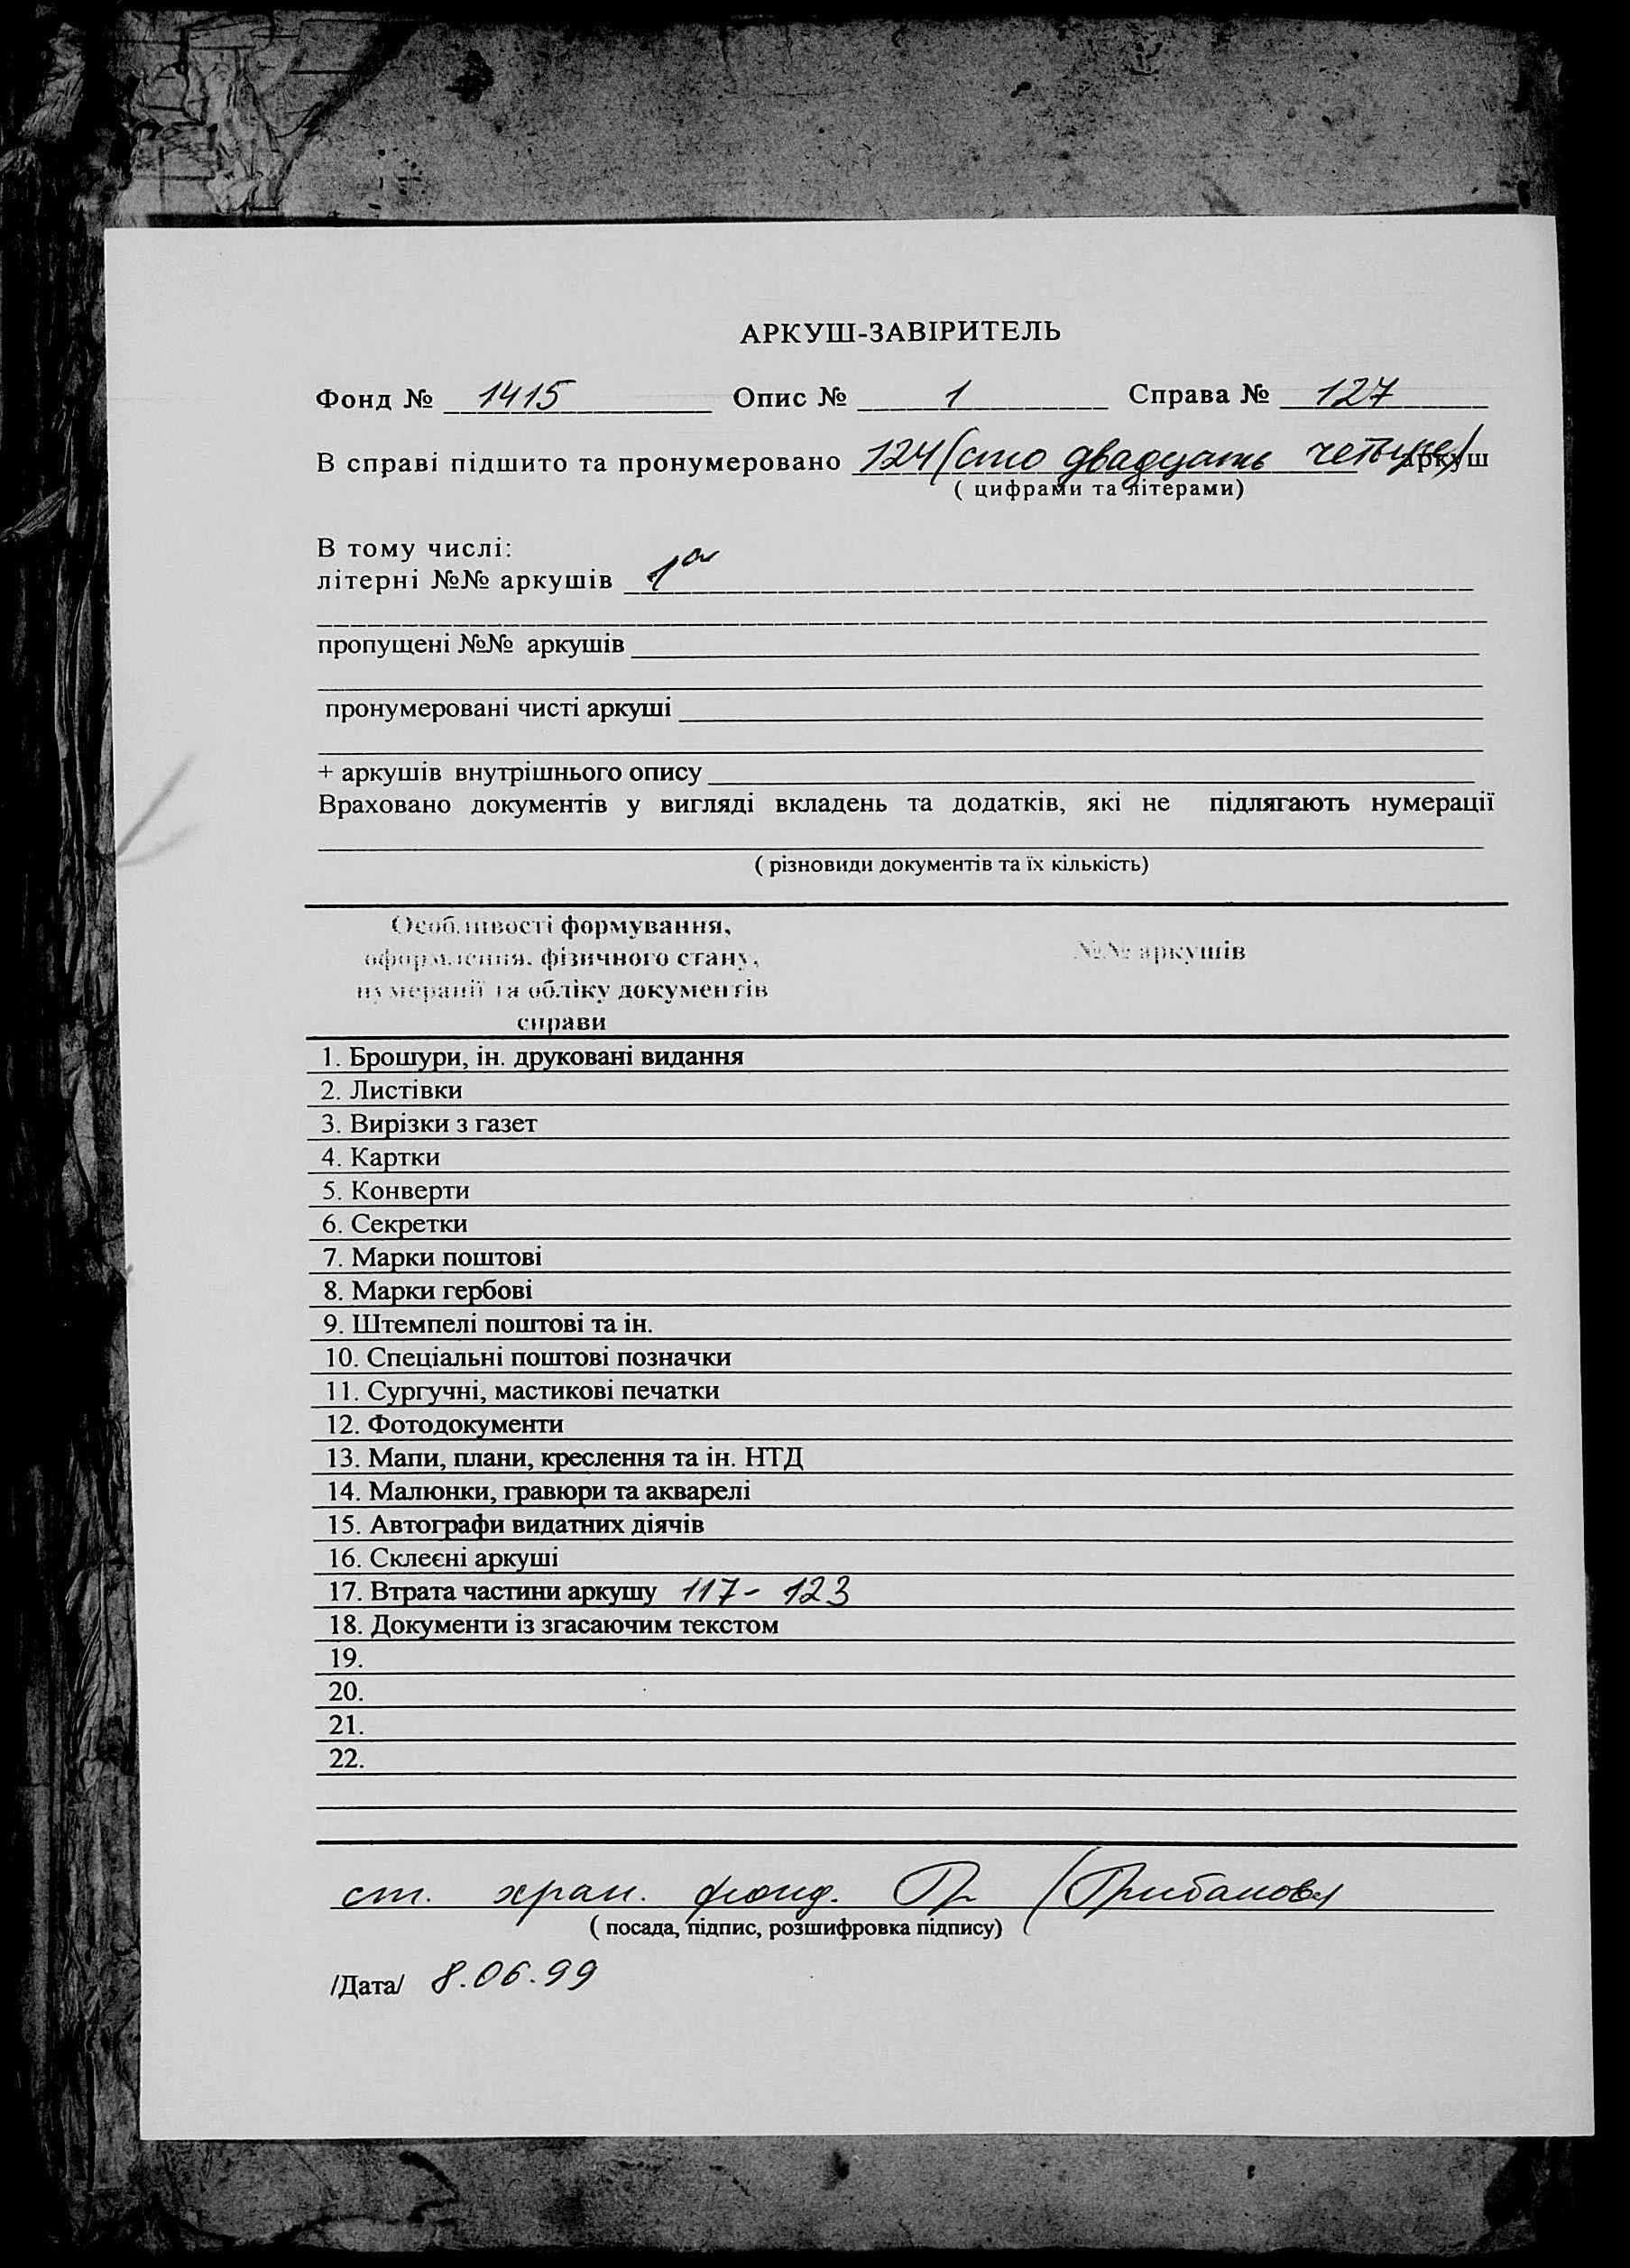 АРКУШ-ЗАВІРИТЕЛЬ
Фонд № 1415 Опис № 1 Справа № 127
В справі підшито та пронумеровано 124 (сто двадцать четыре) аркуш
( цифрами та літерами)
В тому числі:
літерні №№ аркушів 1а
пропущені №№ аркушів
пронумеровані чисті аркуші
+ аркушів внутрішнього опису
Враховано документів у вигляді вкладень та додатків, які не підлягають нумерації
( різновиди документів та їх кількість)
Особливості формування,
оформлення, фізичного стану,
№№ аркушів
нумерації та обліку документів
справи
1. Брошури, ін. друковані видання
2. Листівки
3. Вирізки з газет
4. Картки
5. Конверти
6. Секретки
7. Марки поштові
8. Марки гербові
9. Штемпелі поштові та ін.
10. Спеціальні поштові позначки
11. Сургучні, мастикові печатки
12. Фотодокументи
13. Мапи, плани, креслення та ін. НТД
14. Малюнки, гравюри та акварелі
15. Автографи видатних діячів
16. Склеєні аркуші
17. Втрата частини аркушу 117 - 123
18. Документи із згасаючим текстом
19.
20.
21.
22.
ст. хран. фонд.
( посада, підпис, розшифровка підпису)
/Дата/ 8.06.99